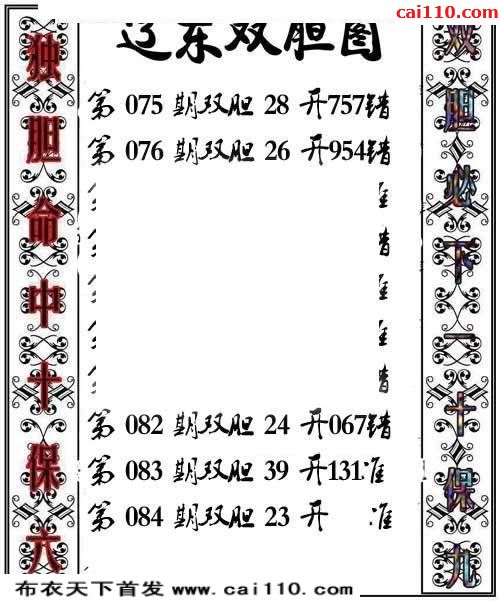 cai110.com
辽东双胆图
独胆命中十保六
双胆必下一十保九
第 075 期双胆 28 开757错
第 076 期双胆 26 开954错
第 082 期双胆 24 开067错
第 083 期双胆 39 开131准
第 084 期双胆 23 开 准
布衣天下首发 www.cai110.com